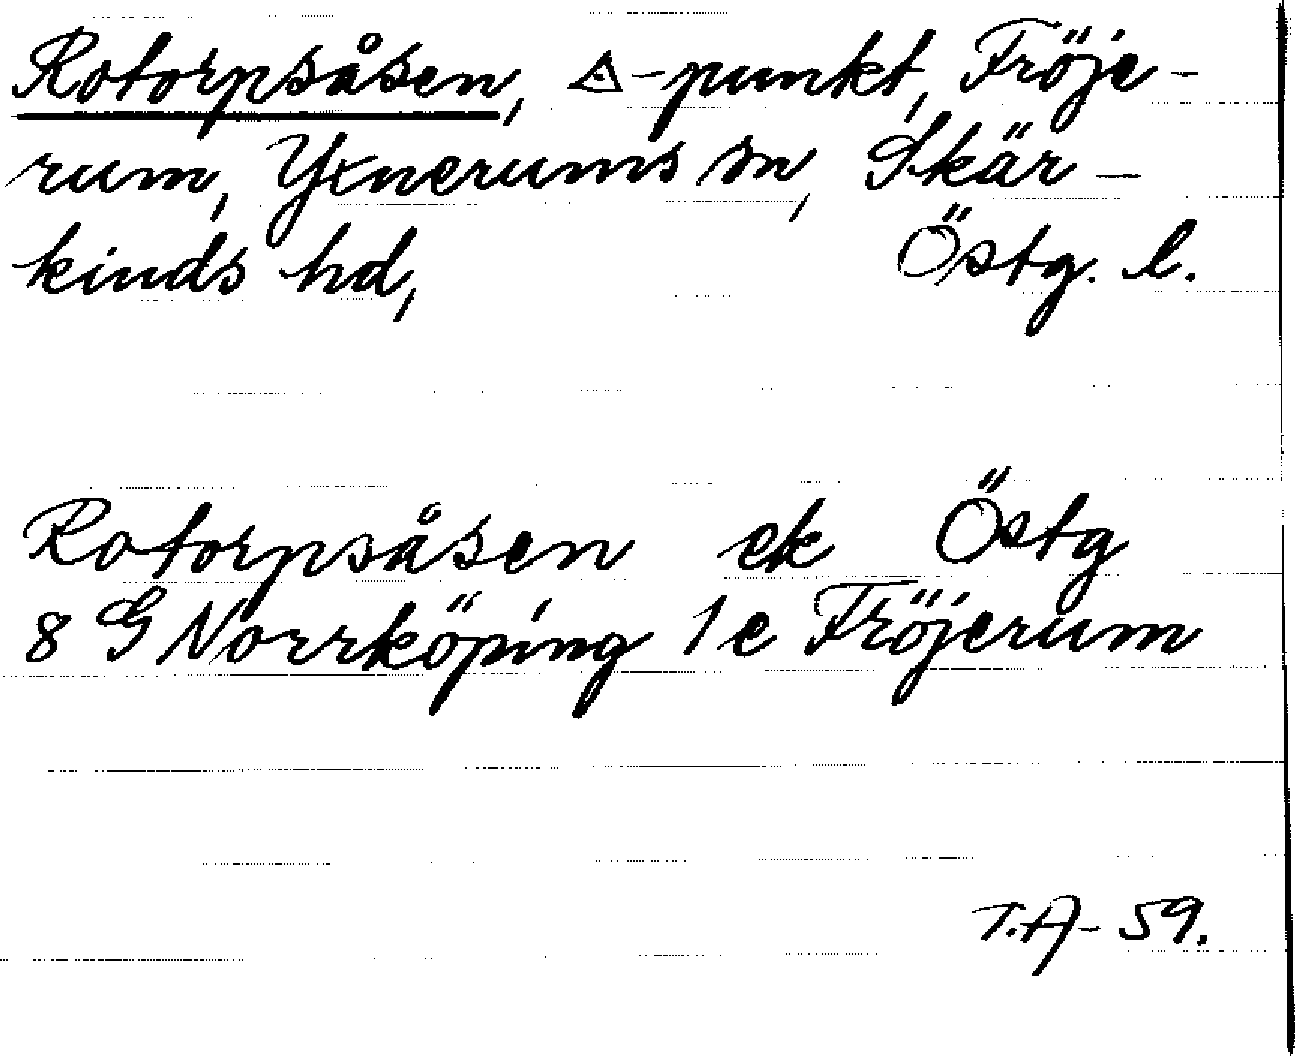 Rotorpsåsen, △-punkt, Fröje-
rum, Yxnerums sn, Skär-
kinds hd, Östg. l.
Rotorpsåsen ek Östg
8 G Norrköping 1 e Fröjerum
T.A- 59.